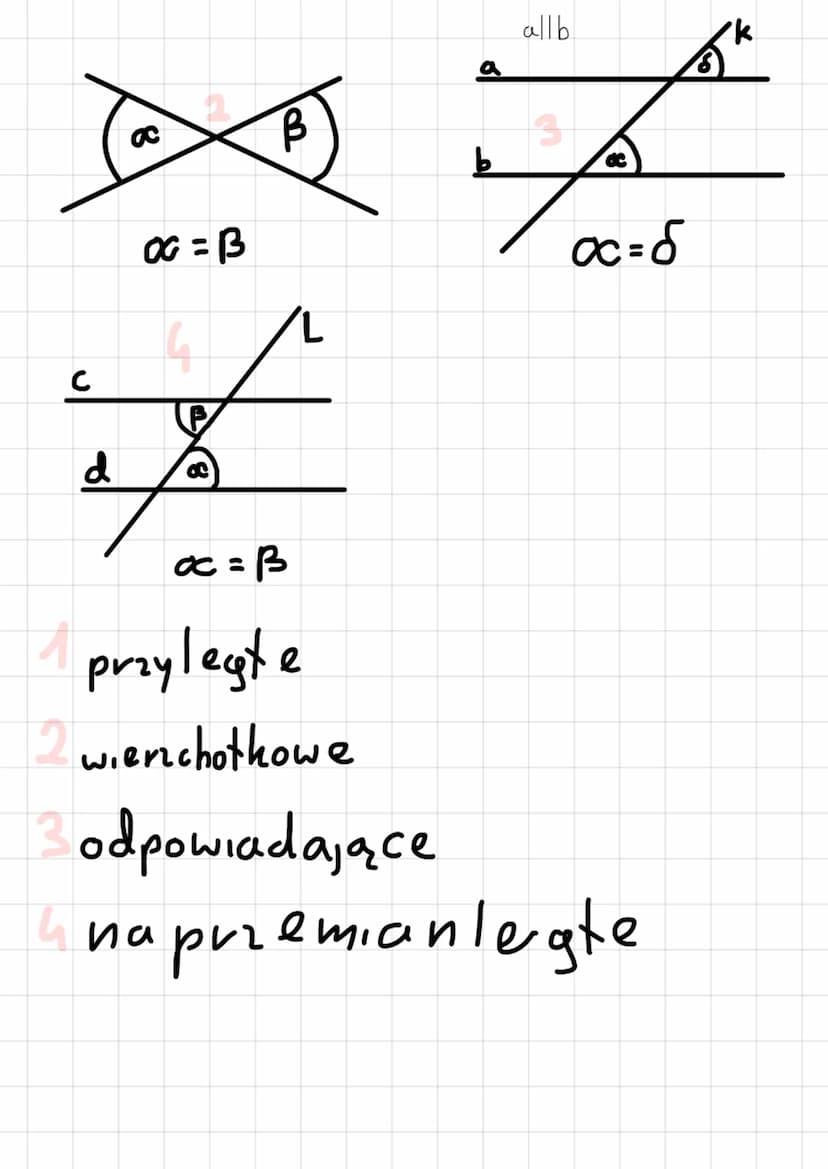 a||b
k
a
δ
2
α
β
3
b
α
α = β
α = δ
4
L
c
β
d
α
α = β
1 przyległe
2 wierzchołkowe
3 odpowiadające
4 naprzemianległe